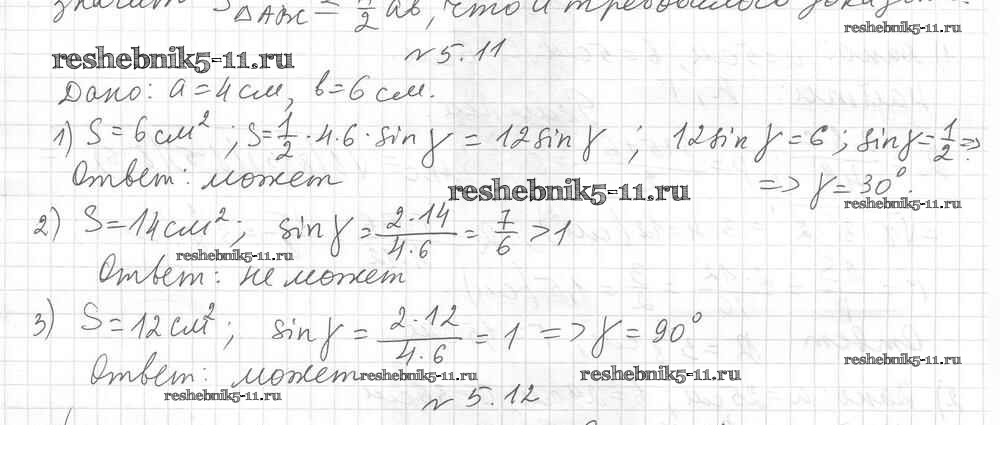 значит S△ABC = 1/2 ab, что и требовалось
reshebnik5-11.ru
№ 5.11
reshebnik5-11.ru
Дано: a = 4 см, b = 6 см.
1) S = 6 см²; S = 1/2 · 4 · 6 · sin γ = 12 sin γ; 12 sin γ = 6; sin γ = 1/2 =>
Ответ: может
=> γ = 30°.
reshebnik5-11.ru
reshebnik5-11.ru
2) S = 14 см²; sin γ = 2·14/4·6 = 7/6 > 1
reshebnik5-11.ru
Ответ: не может
3) S = 12 см²; sin γ = 2·12/4·6 = 1 => γ = 90°
reshebnik5-11.ru
Ответ: может
reshebnik5-11.ru
reshebnik5-11.ru
reshebnik5-11.ru
№ 5.12